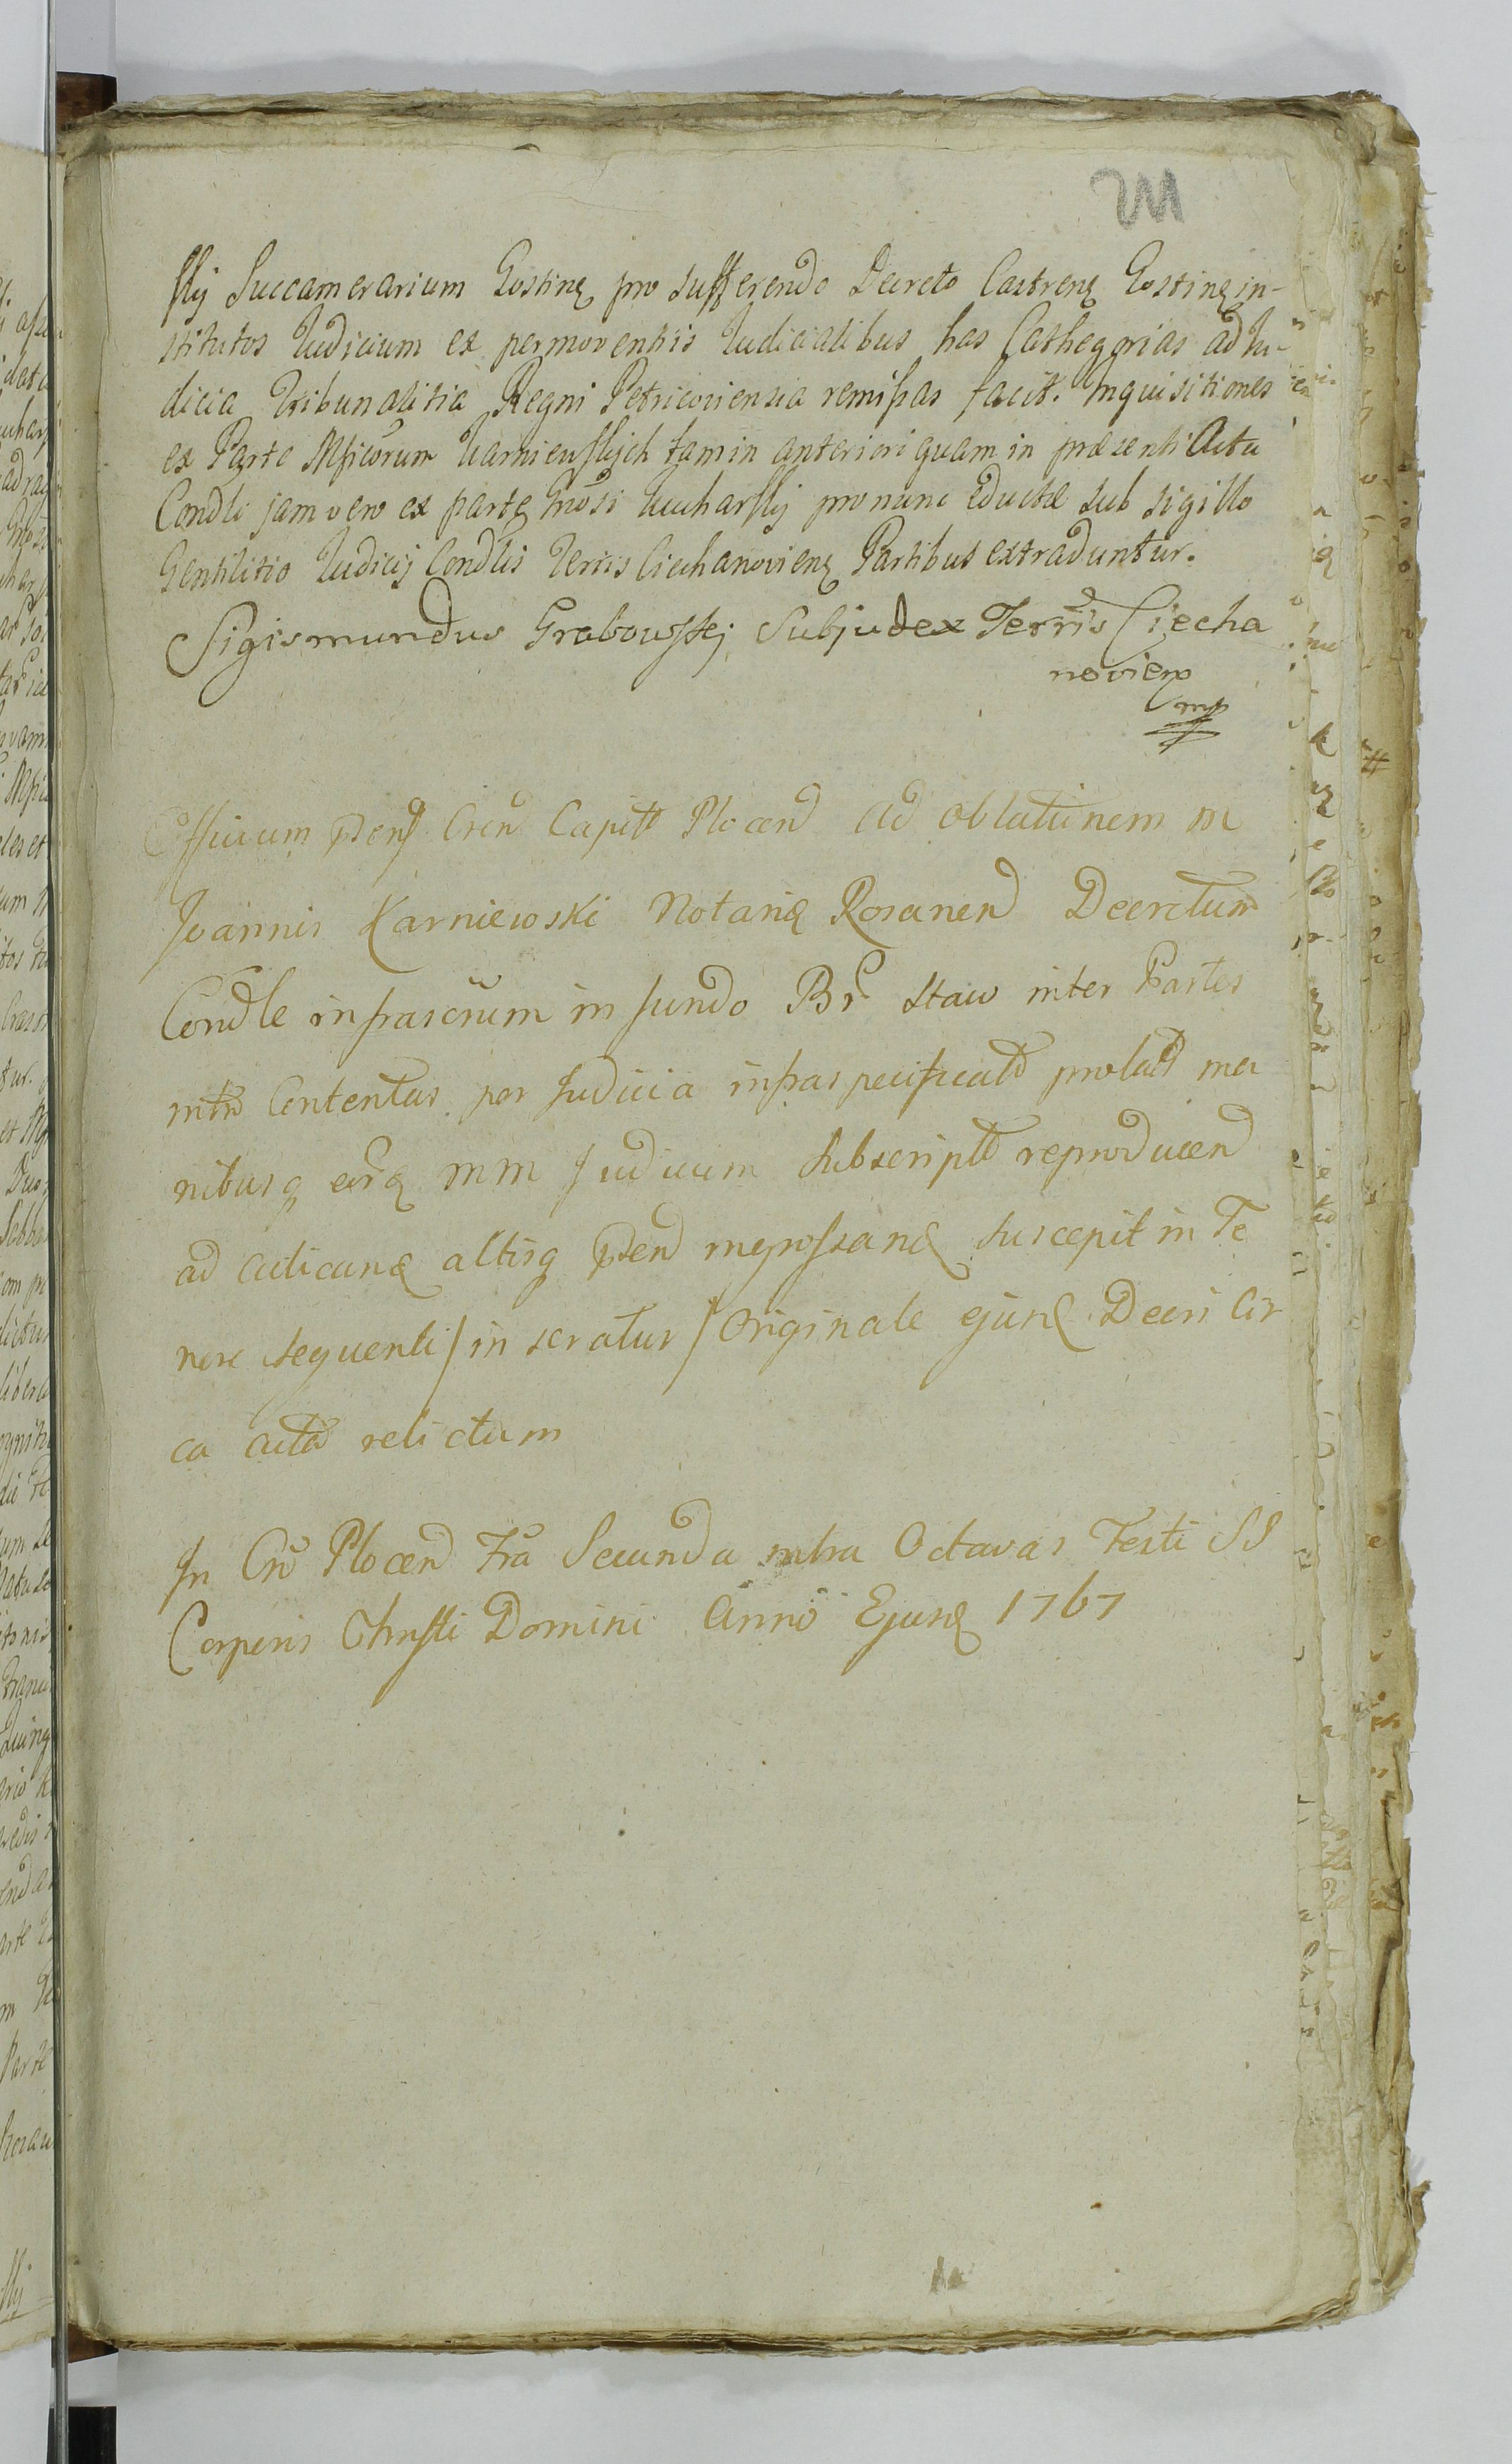 211
skij Succamerarium Gostinę pro sufferendo Decreto Castrenę Gostinę in-
stitutos Iudicium ex permoventiis Iudicialibus has Cathegorias ad Iu-
dicia Tribunalitia Regni Petricoviensia remissas facit. Inquisitiones
ex Parte Mficorum Karniewskich tam in anteriori quam in præsenti Actu
Condli jam vero ex parte Gnosi Kucharskij pro nunc eductæ sub sigillo
Gentilitio Iudicij Condlis Terris Ciechanovienę Partibus extraduntur.
Sigismundus Grabowskj Subjudex Terris Ciecha
novien
mp
Officium Capit Plocen Ad Oblationem M
Joannis Karniewski Notarię Rosanen Decretum
Condle infrascrum in fundo Br Staw inter Partes
intro Contentas per Judicia infraspecificat prolat ma
nibusq eorę MM Judicum Subscript reproducen
ad acticanę altisq susceptit in Te
nore sequenti / inseratur / Originale ejusd Decri Cir
ca acta relictum
In Cro Plocen Fra Secunda intra Octavas Festi SS
Corporis Christi Domini Anno Ejusd 1767